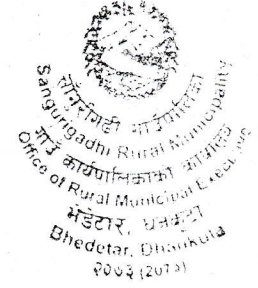 साँगुरीगढी गाउँपालिका
Sangurigadhi Rural Municipality
गाउँ कार्यपालिकाको कार्यालय
Office of Rural Municipal Executive
भेडेटार, धनकुटा
Bhedetar, Dhankuta
२०७३ (2017)